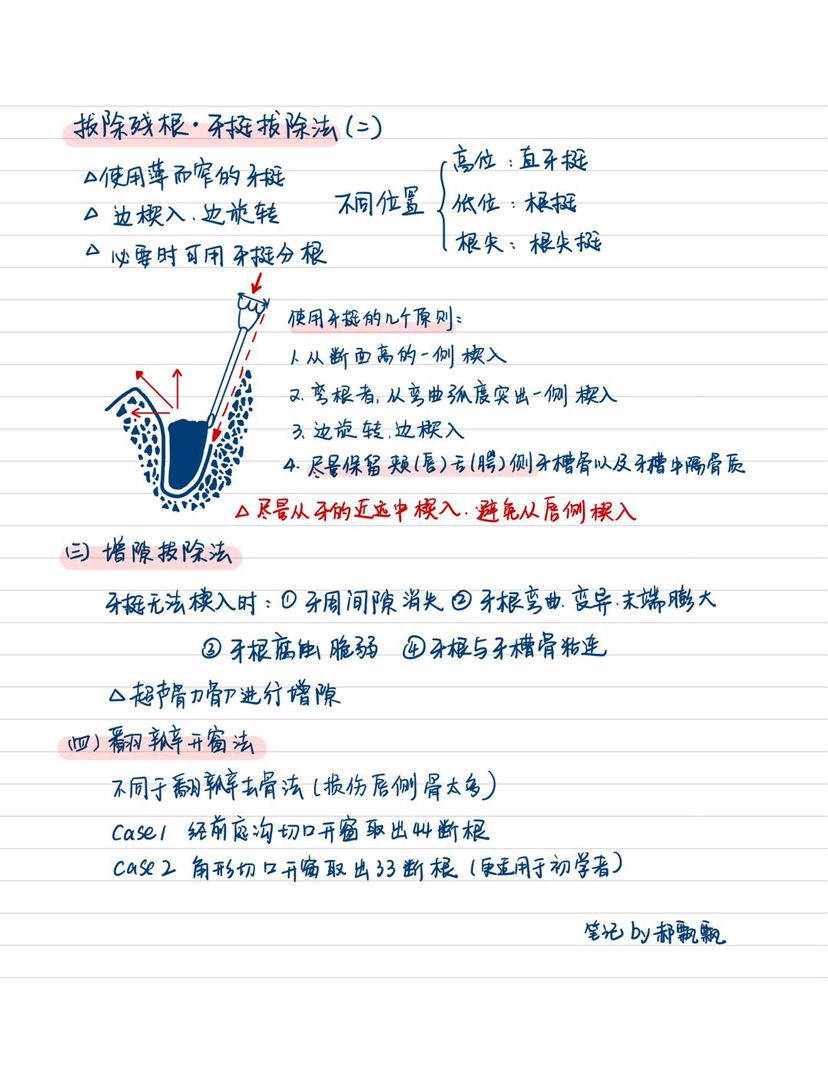 拔除残根·牙挺拔除法(二)
△使用薄而窄的牙挺
△ 边楔入、边旋转
△ 必要时可用牙挺分根
不同位置
高位:直牙挺
低位:根挺
根尖:根尖挺
使用牙挺的几个原则:
1. 从断面高的一侧楔入
2. 弯根者,从弯曲弧度突出一侧楔入
3. 边旋转、边楔入
4. 尽量保留颊(唇)舌(腭)侧牙槽骨以及牙槽中隔骨质
△ 尽量从牙的近远中楔入、避免从唇侧楔入
(三) 增隙拔除法
牙挺无法楔入时:① 牙周间隙消失 ② 牙根弯曲、变异、末端膨大
③ 牙根腐蚀脆弱 ④ 牙根与牙槽骨粘连
△ 超声骨刀进行增隙
(四) 翻瓣开窗法
不同于翻瓣去骨法(损伤唇侧骨太多)
case1 经前庭沟切口开窗取出44断根
case2 角形切口开窗取出33断根(更适用于初学者)
笔记by郝飘飘